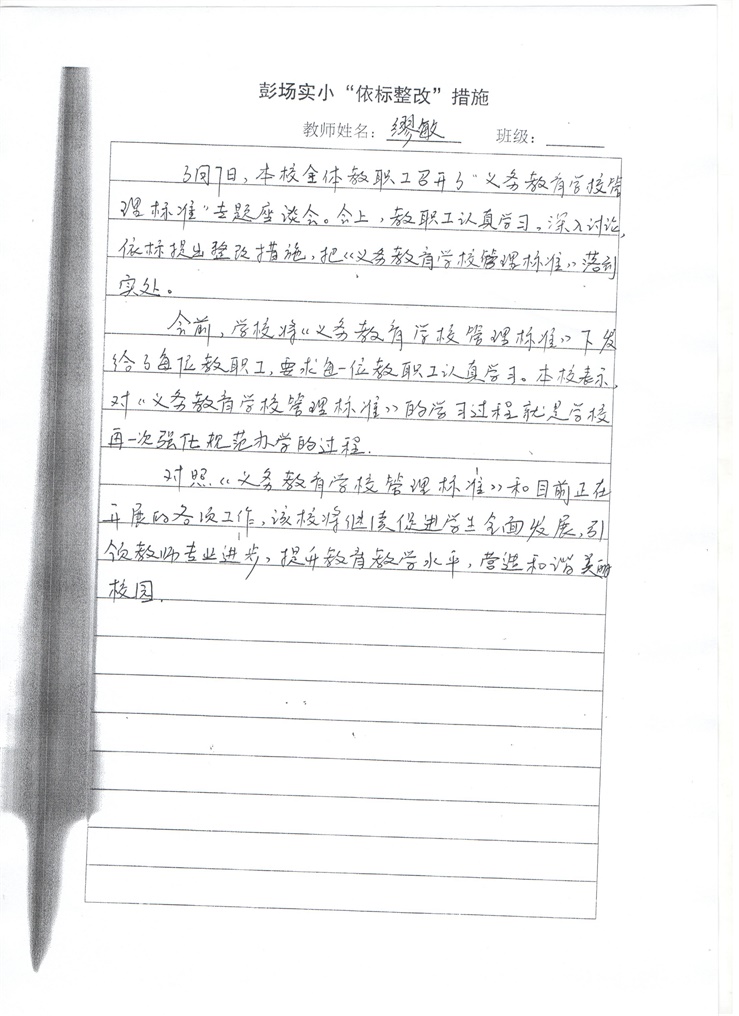 彭场实小“依标整改”措施
教师姓名：缪敏 班级：
3月7日，本校全体教职工召开了“义务教育学校管
理标准”专题座谈会。会上，教职工认真学习。深入讨论，
依标提出整改措施，把《义务教育学校管理标准》落到
实处。
会前，学校将《义务教育学校管理标准》下发
给了每位教职工，要求每一位教职工认真学习。本校表示，
对《义务教育学校管理标准》的学习过程就是学校
再一次强化规范办学的过程.
对照《义务教育学校管理标准》和目前正在
开展的各项工作，该校将继续促进学生全面发展，引
领教师专业进步，提升教育教学水平，营造和谐美丽
校园.